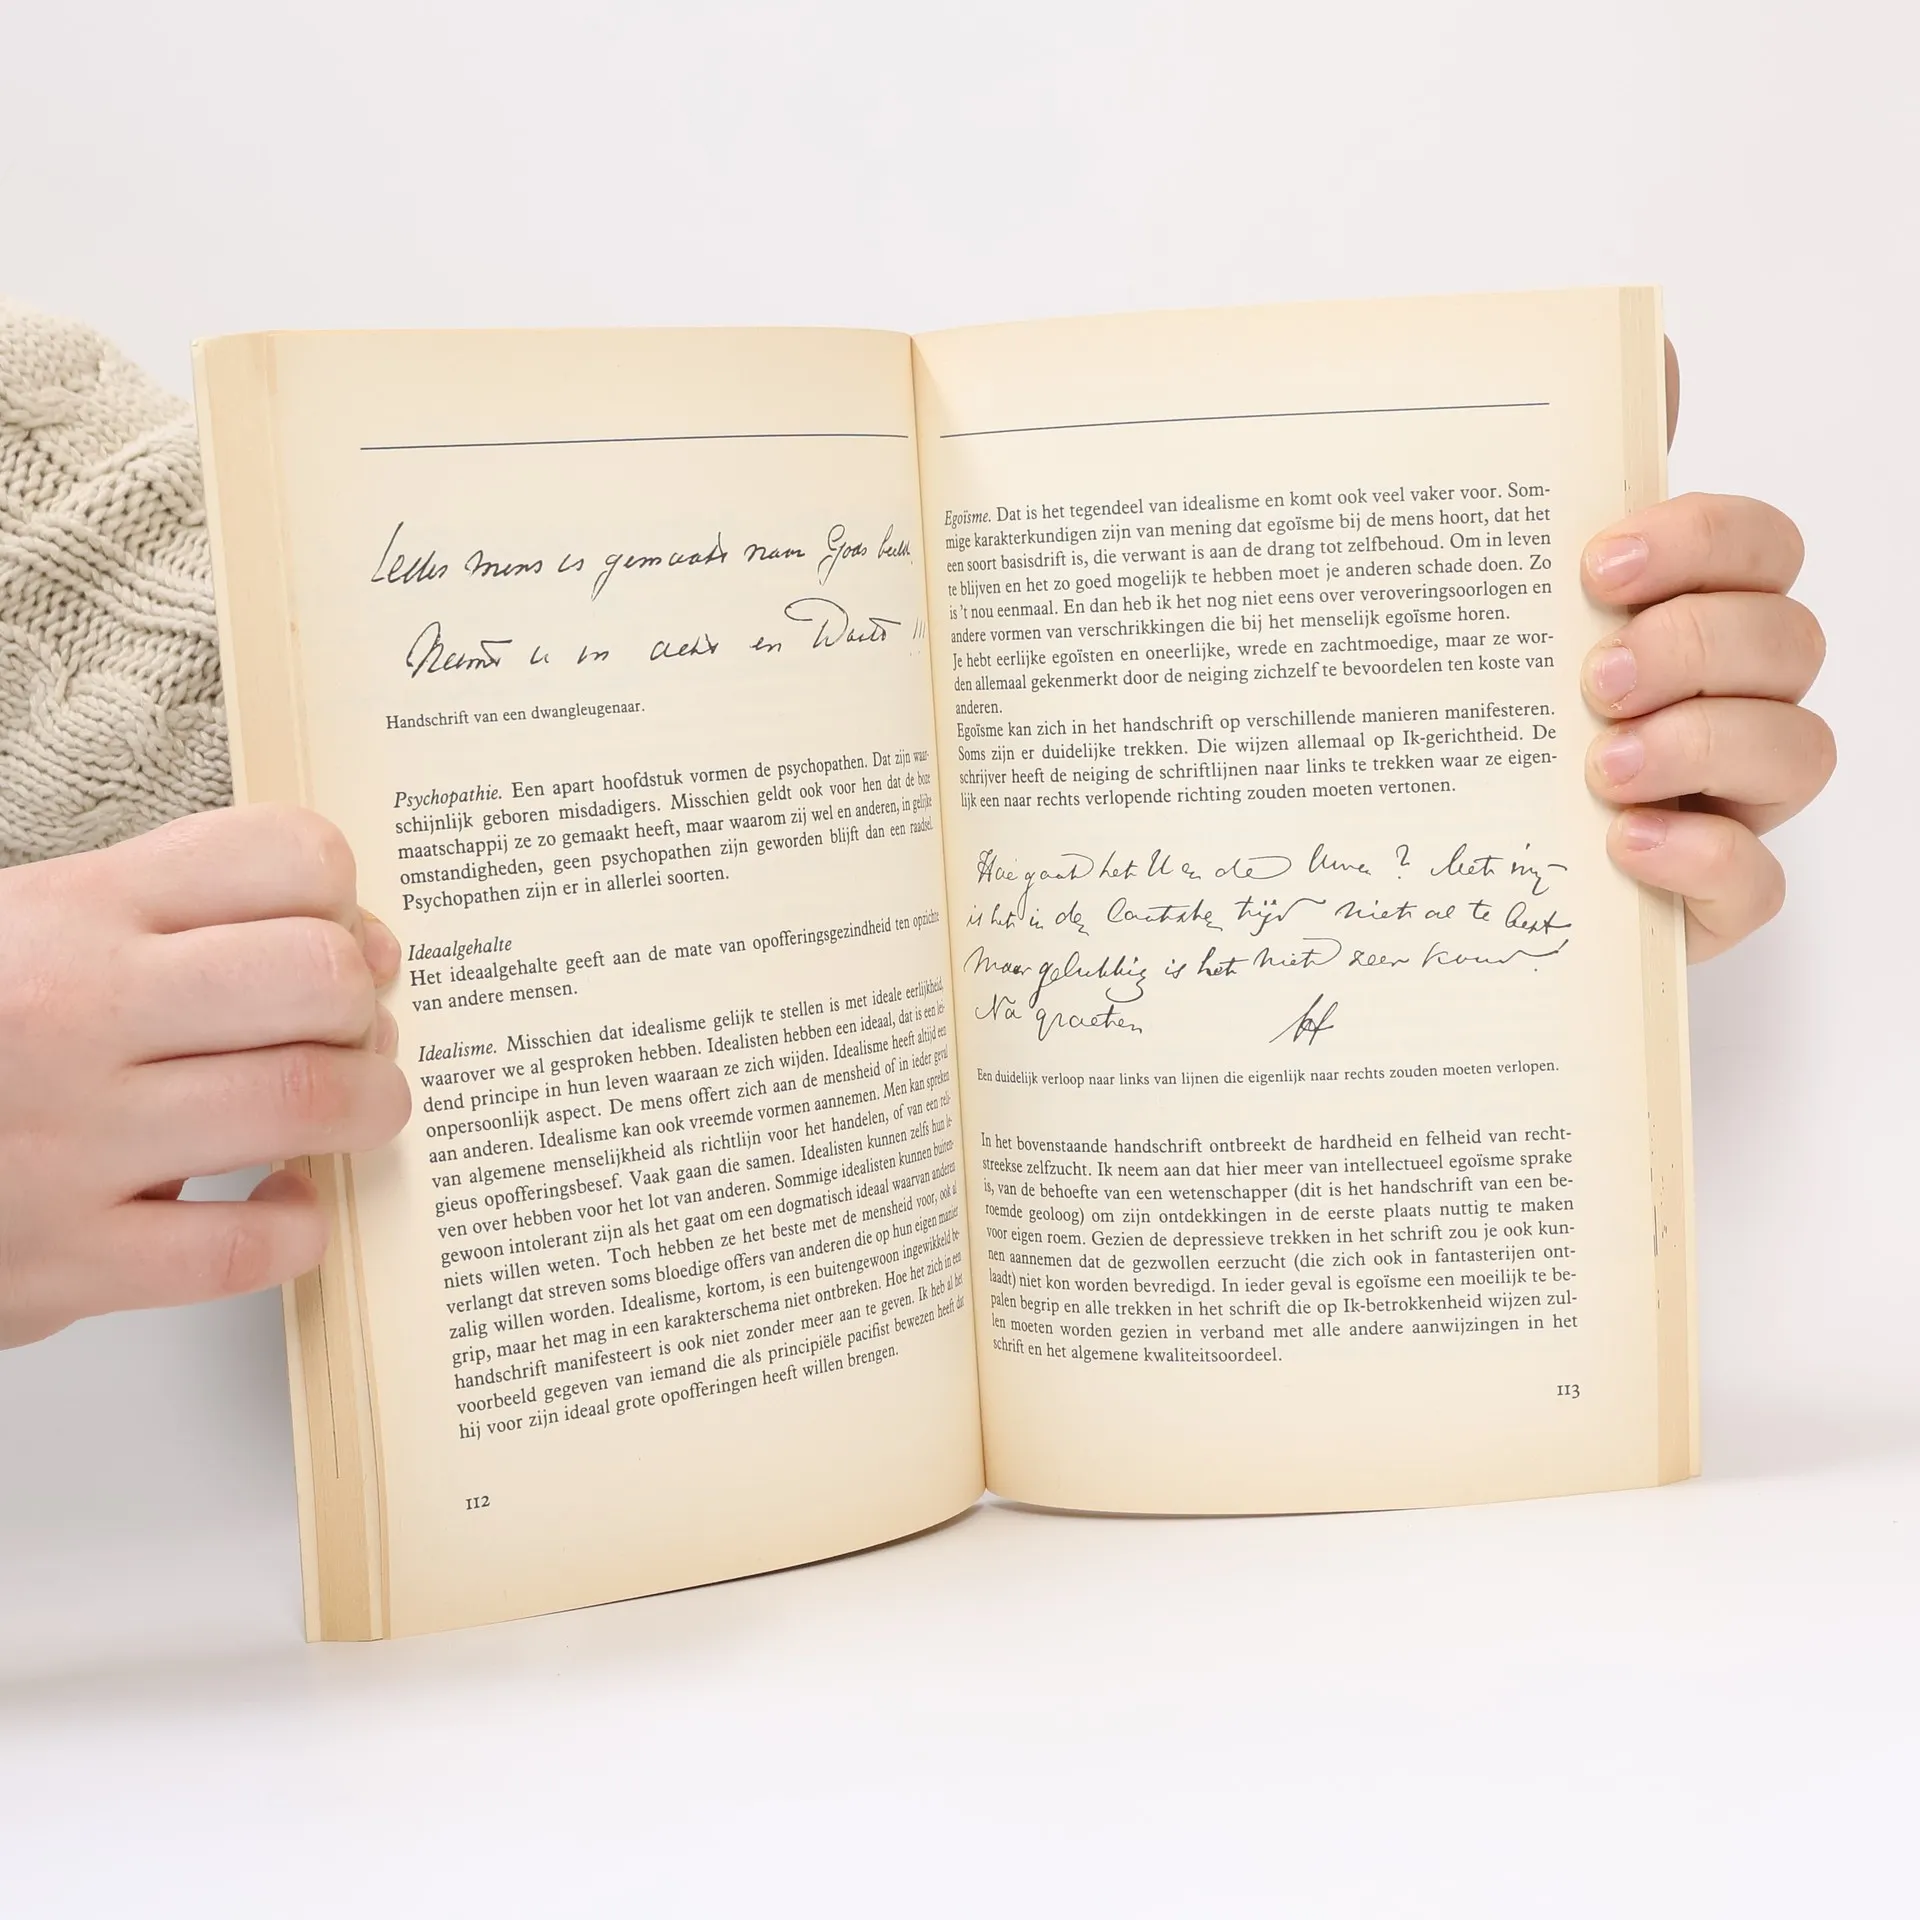 mens is gemaakt naar Gods beeld
Neemt u in acht en Wacht !!!
Handschrift van een dwangleugenaar.
Psychopathie. Een apart hoofdstuk vormen de psychopathen. Dat zijn waar-
schijnlijk geboren misdadigers. Misschien geldt ook voor hen dat de boze
maatschappij ze zo gemaakt heeft, maar waarom zij wel en anderen, in gelijke
omstandigheden, geen psychopathen zijn geworden blijft dan een raadsel.
Psychopathen zijn er in allerlei soorten.
Ideaalgehalte
Het ideaalgehalte geeft aan de mate van opofferingsgezindheid ten opzichte
van andere mensen.
Idealisme. Misschien dat idealisme gelijk te stellen is met ideale eerlijkheid,
waarover we al gesproken hebben. Idealisten hebben een ideaal, dat is een lei-
dend principe in hun leven waaraan ze zich wijden. Idealisme heeft altijd een
onpersoonlijk aspect. De mens offert zich aan de mensheid of in ieder geval
aan anderen. Idealisme kan ook vreemde vormen aannemen. Men kan spreken
van algemene menselijkheid als richtlijn voor het handelen, of van een reli-
gieus opofferingsbesef. Vaak gaan die samen. Idealisten kunnen zelfs hun le-
ven over hebben voor het lot van anderen. Sommige idealisten kunnen buiten-
gewoon intolerant zijn als het gaat om een dogmatisch ideaal waarvan anderen
niets willen weten. Toch hebben ze het beste met de mensheid voor, ook al
verlangt dat streven soms bloedige offers van anderen die op hun eigen manier
zalig willen worden. Idealisme, kortom, is een buitengewoon ingewikkeld be-
grip, maar het mag in een karakterschema niet ontbreken. Hoe het zich in een
handschrift manifesteert is ook niet zonder meer aan te geven. Ik heb al het
voorbeeld gegeven van iemand die als principiële pacifist bewezen heeft dat
hij voor zijn ideaal grote opofferingen heeft willen brengen.
112
Egoïsme. Dat is het tegendeel van idealisme en komt ook veel vaker voor. Som-
mige karakterkundigen zijn van mening dat egoïsme bij de mens hoort, dat het
een soort basisdrift is, die verwant is aan de drang tot zelfbehoud. Om in leven
te blijven en het zo goed mogelijk te hebben moet je anderen schade doen. Zo
is 't nou eenmaal. En dan heb ik het nog niet eens over veroveringsoorlogen en
andere vormen van verschrikkingen die bij het menselijk egoïsme horen.
Je hebt eerlijke egoïsten en oneerlijke, wrede en zachtmoedige, maar ze wor-
den allemaal gekenmerkt door de neiging zichzelf te bevoordelen ten koste van
anderen.
Egoïsme kan zich in het handschrift op verschillende manieren manifesteren.
Soms zijn er duidelijke trekken. Die wijzen allemaal op Ik-gerichtheid. De
schrijver heeft de neiging de schriftlijnen naar links te trekken waar ze eigen-
lijk een naar rechts verlopende richting zouden moeten vertonen.
Hoe gaat het U en de Uwen ? Met mij
is het in de laatste tijd niet al te best
Maar gelukkig is het niet zeer koud!
Na groeten
Een duidelijk verloop naar links van lijnen die eigenlijk naar rechts zouden moeten verlopen.
In het bovenstaande handschrift ontbreekt de hardheid en felheid van recht-
streekse zelfzucht. Ik neem aan dat hier meer van intellectueel egoïsme sprake
is, van de behoefte van een wetenschapper (dit is het handschrift van een be-
roemde geoloog) om zijn ontdekkingen in de eerste plaats nuttig te maken
voor eigen roem. Gezien de depressieve trekken in het schrift zou je ook kun-
nen aannemen dat de gezwollen eerzucht (die zich ook in fantasterijen ont-
laadt) niet kon worden bevredigd. In ieder geval is egoïsme een moeilijk te be-
palen begrip en alle trekken in het schrift die op Ik-betrokkenheid wijzen zul-
len moeten worden gezien in verband met alle andere aanwijzingen in het
schrift en het algemene kwaliteitsoordeel.
113